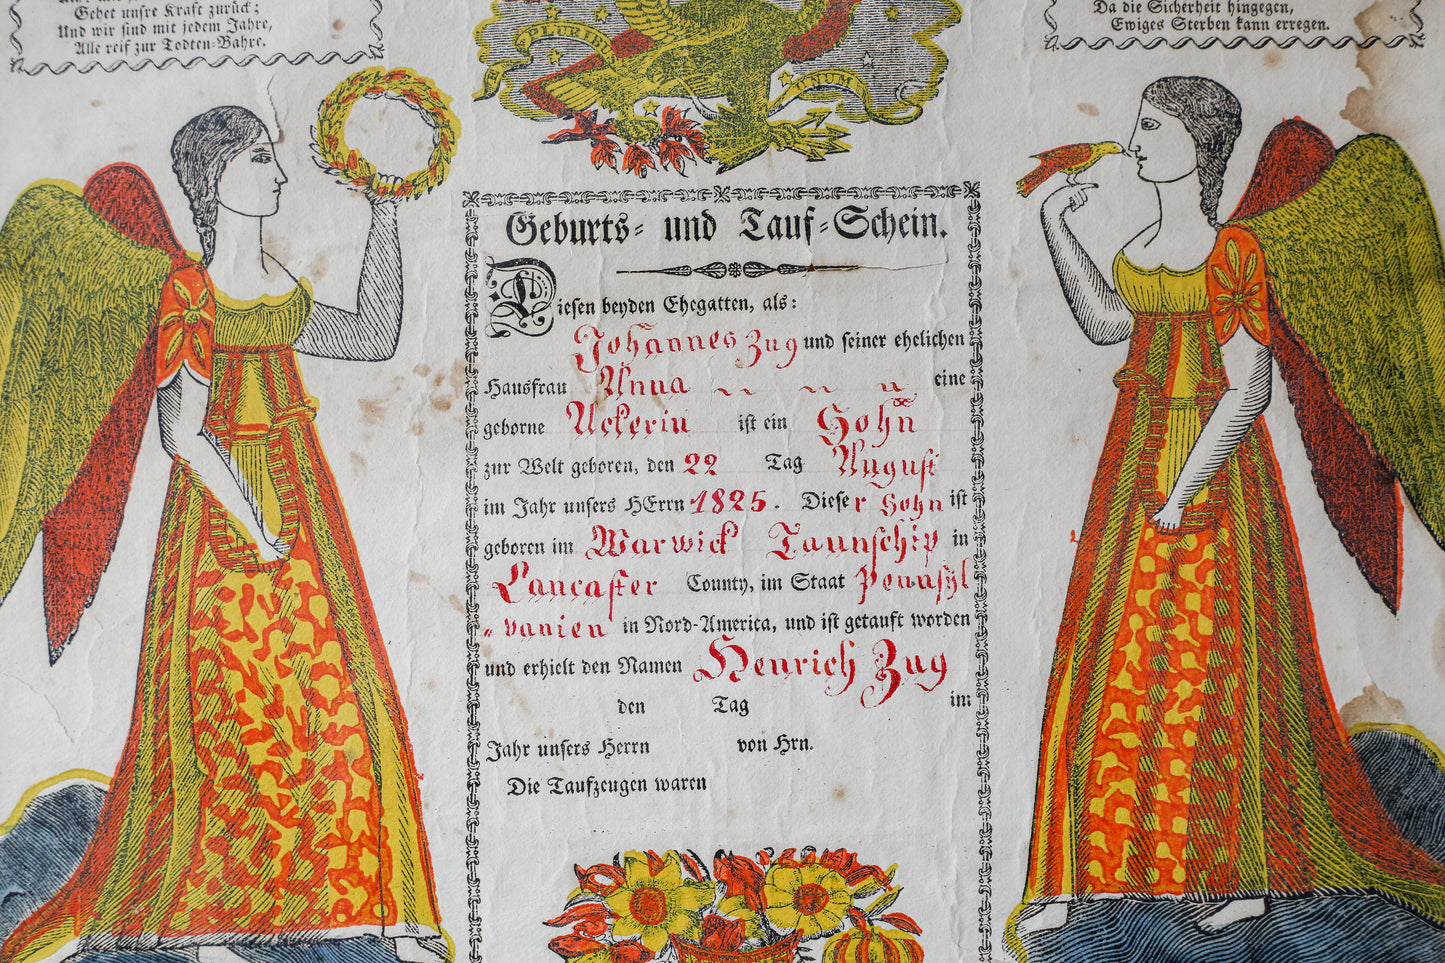 Gehet unsre Kraft zurück;
Und wir sind mit jedem Jahre,
Alle reif zur Todten-Bahre.
E PLURIBU
UNUM
Da die Sicherheit hingegen,
Ewiges Sterben kann erregen.
Geburts- und Tauf-Schein.
Diesen beyden Ehegatten, als:
Johannes Zug und seiner ehelichen
Hausfrau Anna eine
geborne Ackerin ist ein Sohn
zur Welt geboren, den 22 Tag August
im Jahr unsers HErrn 1825. Dieser Sohn ist
geboren im Warwick Taunschip in
Lancaster County, im Staat Pennsyl
vanien in Nord-America, und ist getauft worden
und erhielt den Namen Henrich Zug
den Tag im
Jahr unsers Herrn von Hrn.
Die Taufzeugen waren